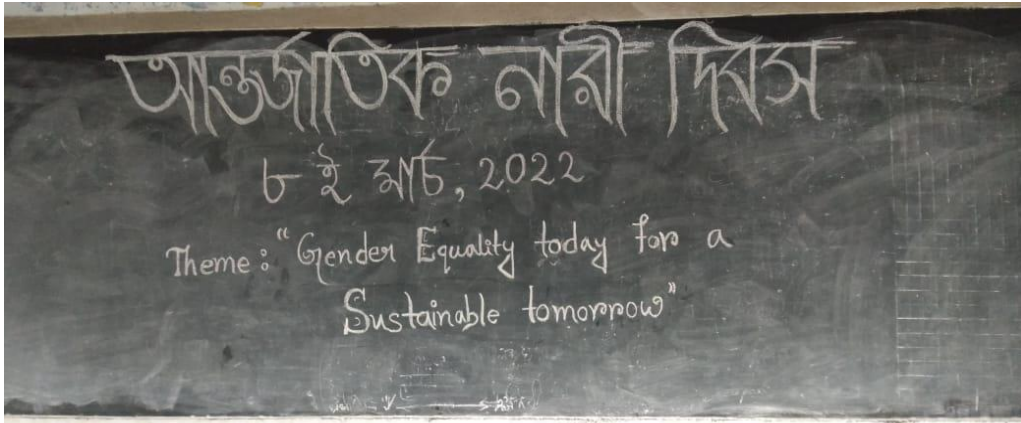 আন্তর্জাতিক নারী দিবস
৮ ই মার্চ, 2022
Theme : "Gender Equality today for a
Sustainable tomorrow"